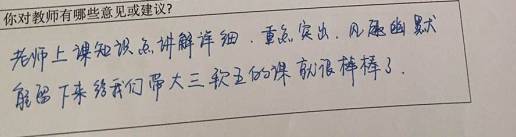 你对教师有哪些意见或建议?
老师上课知识点讲解详细.重点突出.风趣幽默
能留下来给我们带大三软五的课就很棒棒了.